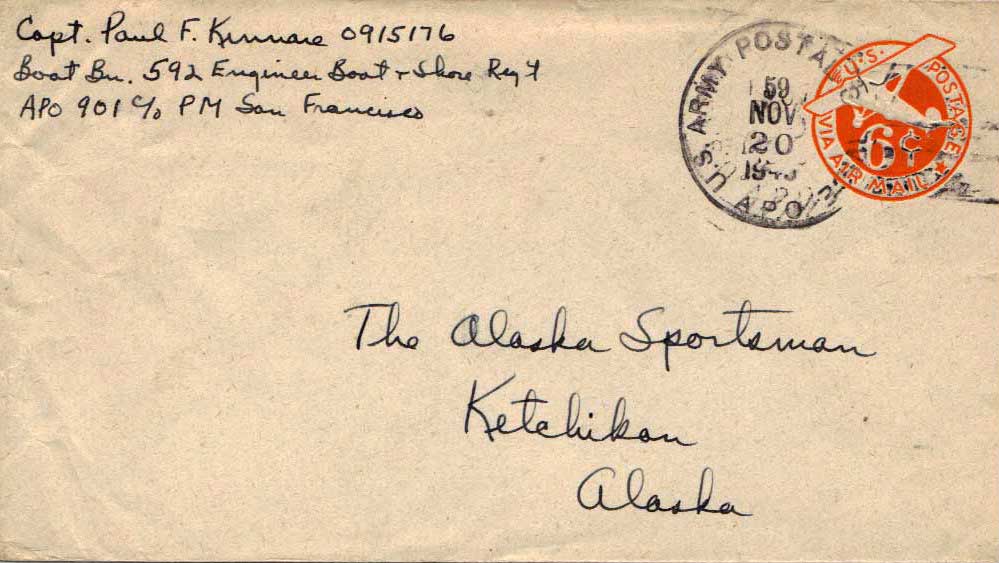 Capt. Paul F. Kinnare 0915176
Boat Bn. 592 Engineer Boat + Shore Reg't
APO 901 c/o PM San Francisco
U.S. ARMY POSTAL
59
NOV
20
A.P.O.
U.S. POSTAGE
6¢
VIA AIR MAIL
The Alaska Sportsman
Ketchikan
Alaska